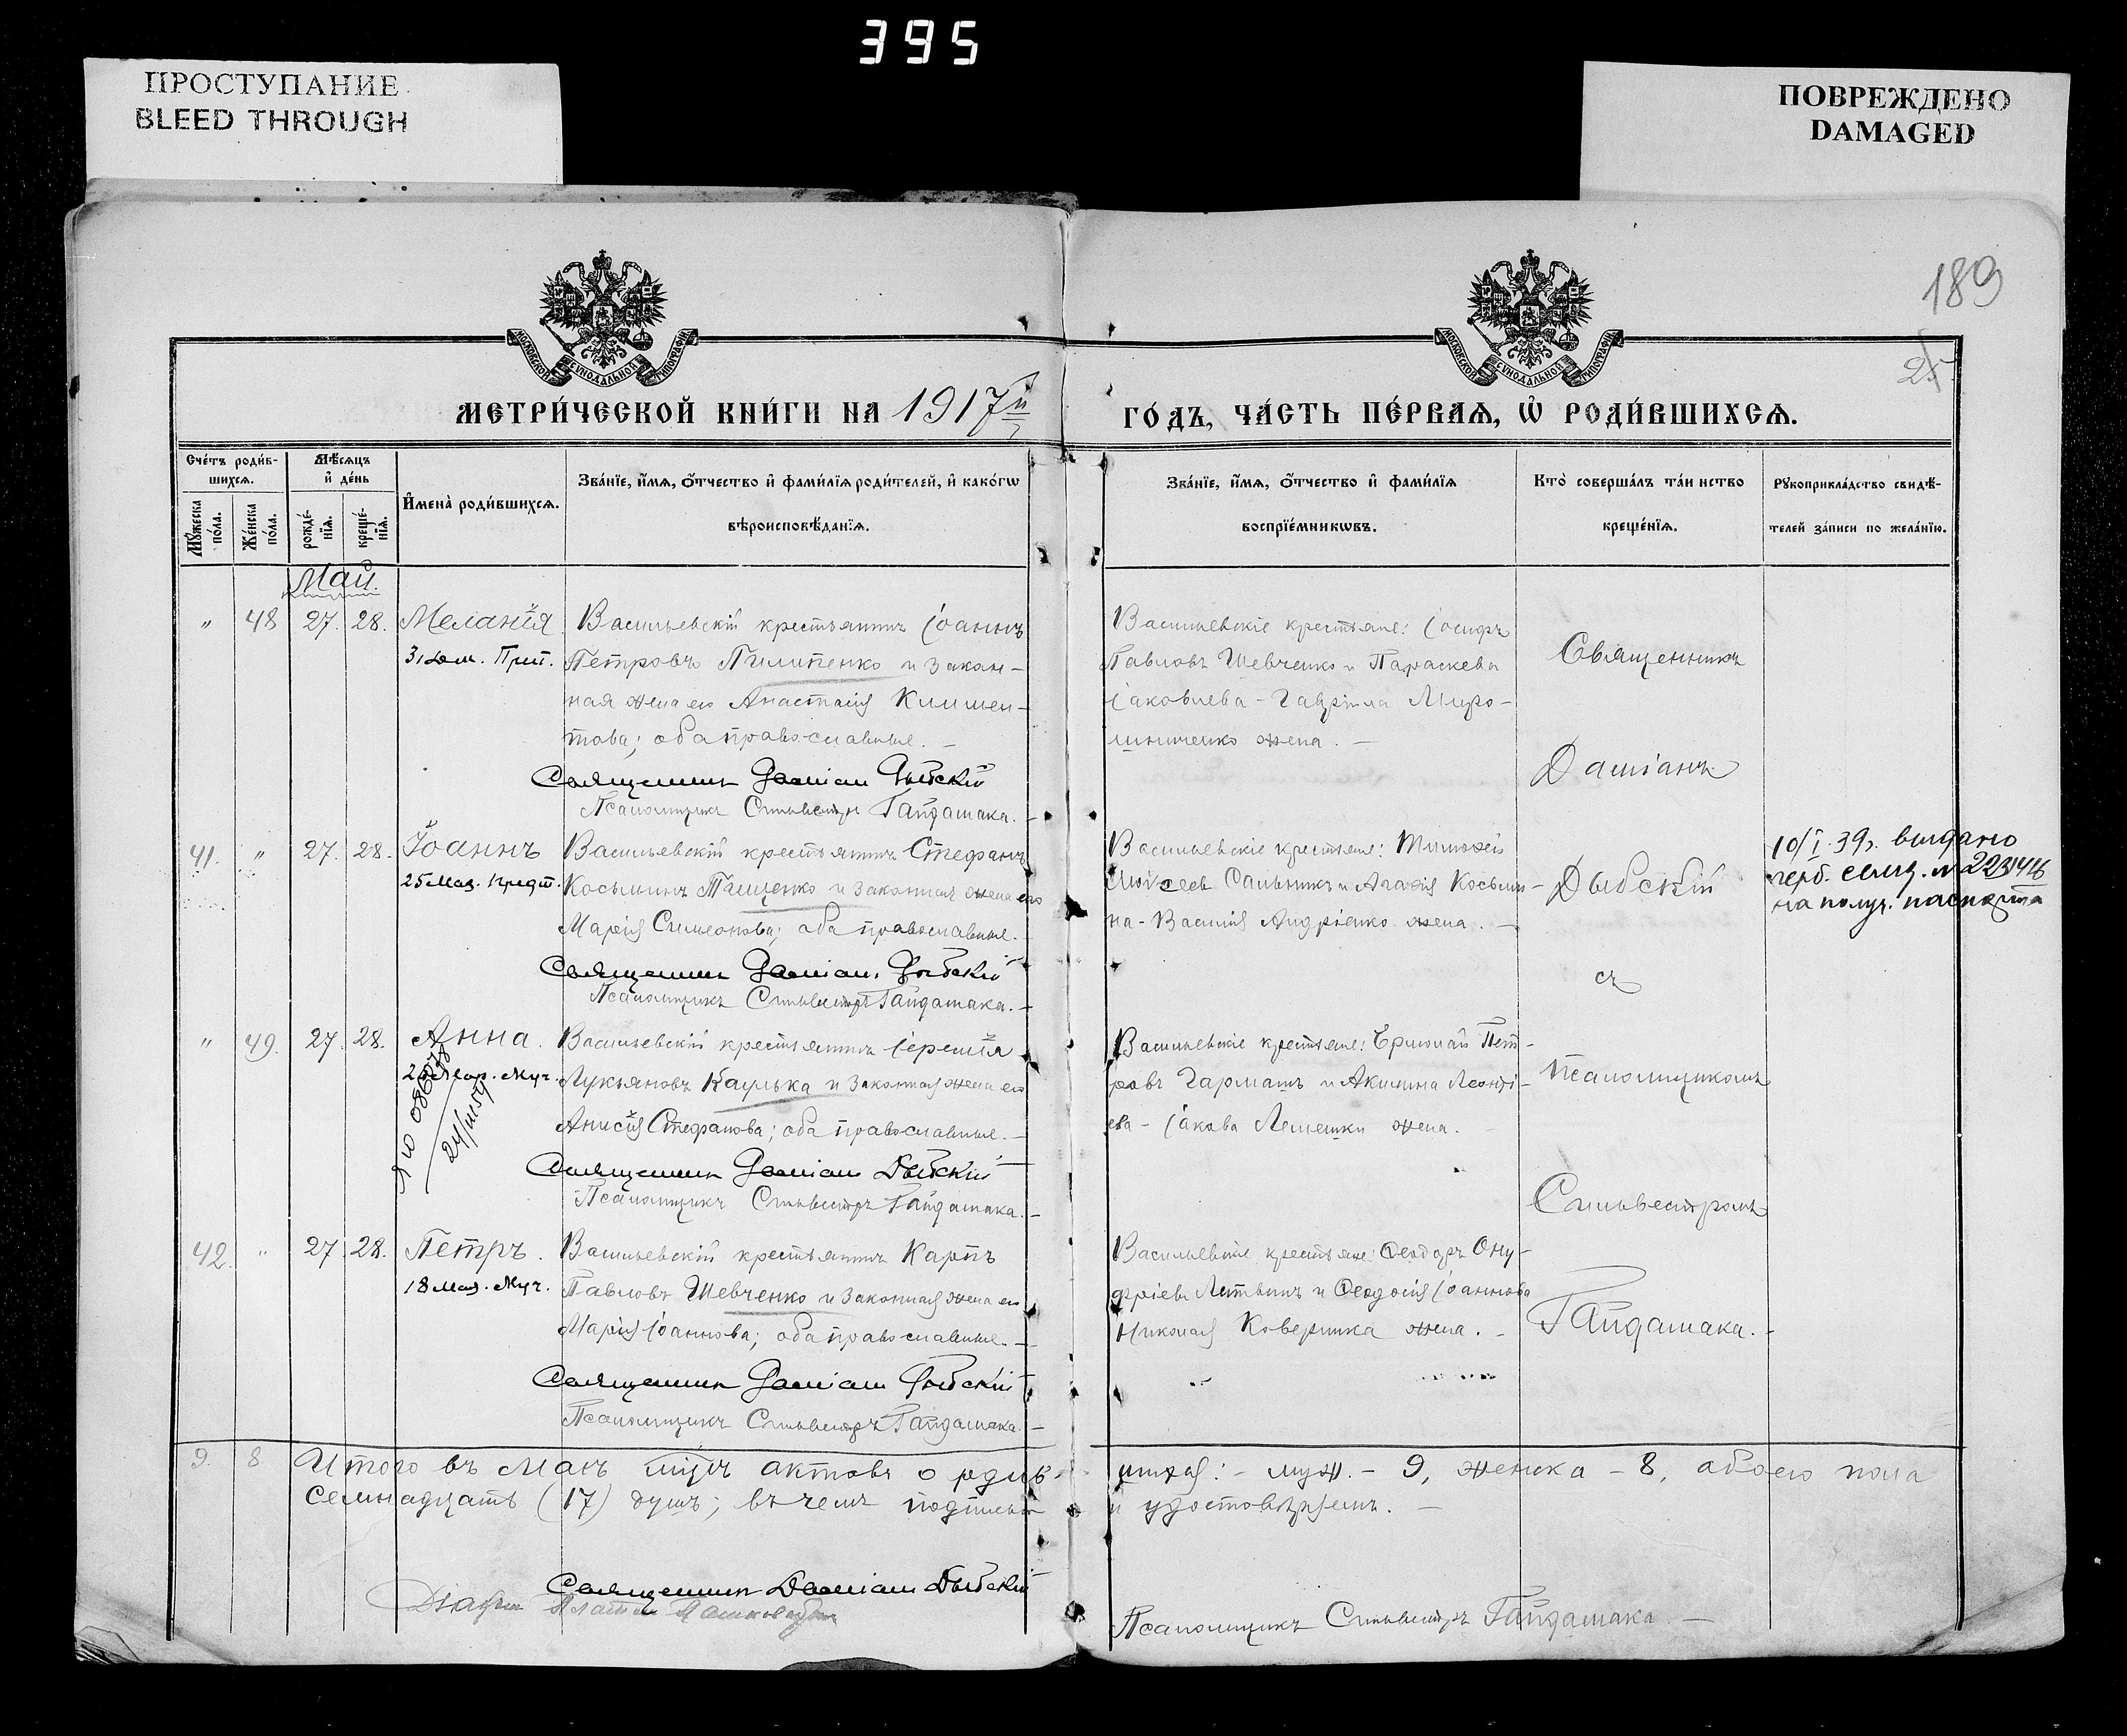 395
ПРОСТУПАНИЕ
BLEED THROUGH
ПОВРЕЖДЕНО
DAMAGED
189
25
МОСКОВСКОЙ СѴНОДАЛЬНОЙ ТИПОГРАФІИ
МОСКОВСКОЙ СѴНОДАЛЬНОЙ ТИПОГРАФІИ
МЕТРИ́ЧЕСКОЙ КНИ́ГИ НА 1917й
ГО́ДЪ, ЧА́СТЬ ПЕ́РВАЯ, Ѡ РОДИ́ВШИХСЯ.
Сче́тъ роди́в-
шихся.
Мѣ́сяцъ
и҆ де́нь
Мꙋ́жеска по́ла.
Же́нска по́ла.
рожде́-
нїѧ.
креще́-
нїѧ.
И҆мена̀ роди́вшихсѧ.
Зва́нїе, и҆́мѧ, ѻ҆́тчество и҆ фами́лїѧ роди́телей, и҆ како́гѡ
вѣроисповѣ́данїѧ.
Зва́нїе, и҆́мѧ, ѻ҆́тчество и҆ фами́лїѧ
воспрїе́мникѡвъ.
Кто̀ соверша́лъ та́инство
креще́нїѧ.
Рꙋкоприкла́дство свидѣ́-
телей за́писи по жела́нїю.
Май.
" 48 27. 28. Меланія
31 Дек. Преп.
Васильевскій крестьянинъ Іоаннъ
Петровъ Пилипенко и закон-
ная жена его Анастасія Климен-
това; оба православные. —
Священникъ Даміанъ Дыбскій
Псаломщикъ Сильвестръ Гайдамака. —
Васильевскіе крестьяне: Іосифъ
Павловъ Шевченко и Параскева
Іаковлева - Гавріила Миро-
шниченко жена. —
Священникъ
Даміанъ
Дыбскій
съ
Псаломщикомъ
Сильвестромъ
Гайдамака. —
41. " 27. 28. Іоаннъ
25 Мая. Предт.
Васильевскій крестьянинъ Стефанъ
Косьминъ Тищенко и законная жена его
Марія Симеонова; оба православные. —
Священникъ Даміанъ Дыбскій
Псаломщикъ Сильвестръ Гайдамака. —
Васильевскіе крестьяне: Тимофей
Моисеевъ Сальникъ и Агафія Косьми-
на - Василія Андріенко жена. —
10/I. 39г. выдано
герб. свид. №
на получ. паспорта
" 49. 27. 28. Анна.
Мар. Муч.
Васильевскій крестьянинъ Іеремія
Лукьяновъ Каулька и законная жена его
Анисія Стефанова; оба православные. —
Священникъ Даміанъ Дыбскій
Псаломщикъ Сильвестръ Гайдамака. —
Васильевскіе крестьяне: Ермолай Пет-
ровъ Гармашъ и Акилина Леонті-
ева - Іакова Лемешки жена.
42. " 27 28. Петръ.
18 Мая. Муч.
Васильевскій крестьянинъ Карпъ
Павловъ Шевченко и законная жена его
Марія Іоаннова; оба православные. —
Священникъ Даміанъ Дыбскій
Псаломщикъ Сильвестръ Гайдамака. —
Васильевскіе крестьяне: Ѳеодоръ Ону-
фріевъ Литвинъ и Ѳеодосія Іоаннова
Николая Коверника жена. —
9. 8 Итого въ Маѣ м-цѣ актовъ о родив-
шихся: - муж. - 9, женска - 8, обоего пола
семнадцать (17) душъ; въ чемъ подписью
и удостовѣряемъ. —
Священникъ Даміанъ Дыбскій
Діаконъ
Псаломщикъ Сильвестръ Гайдамака. —